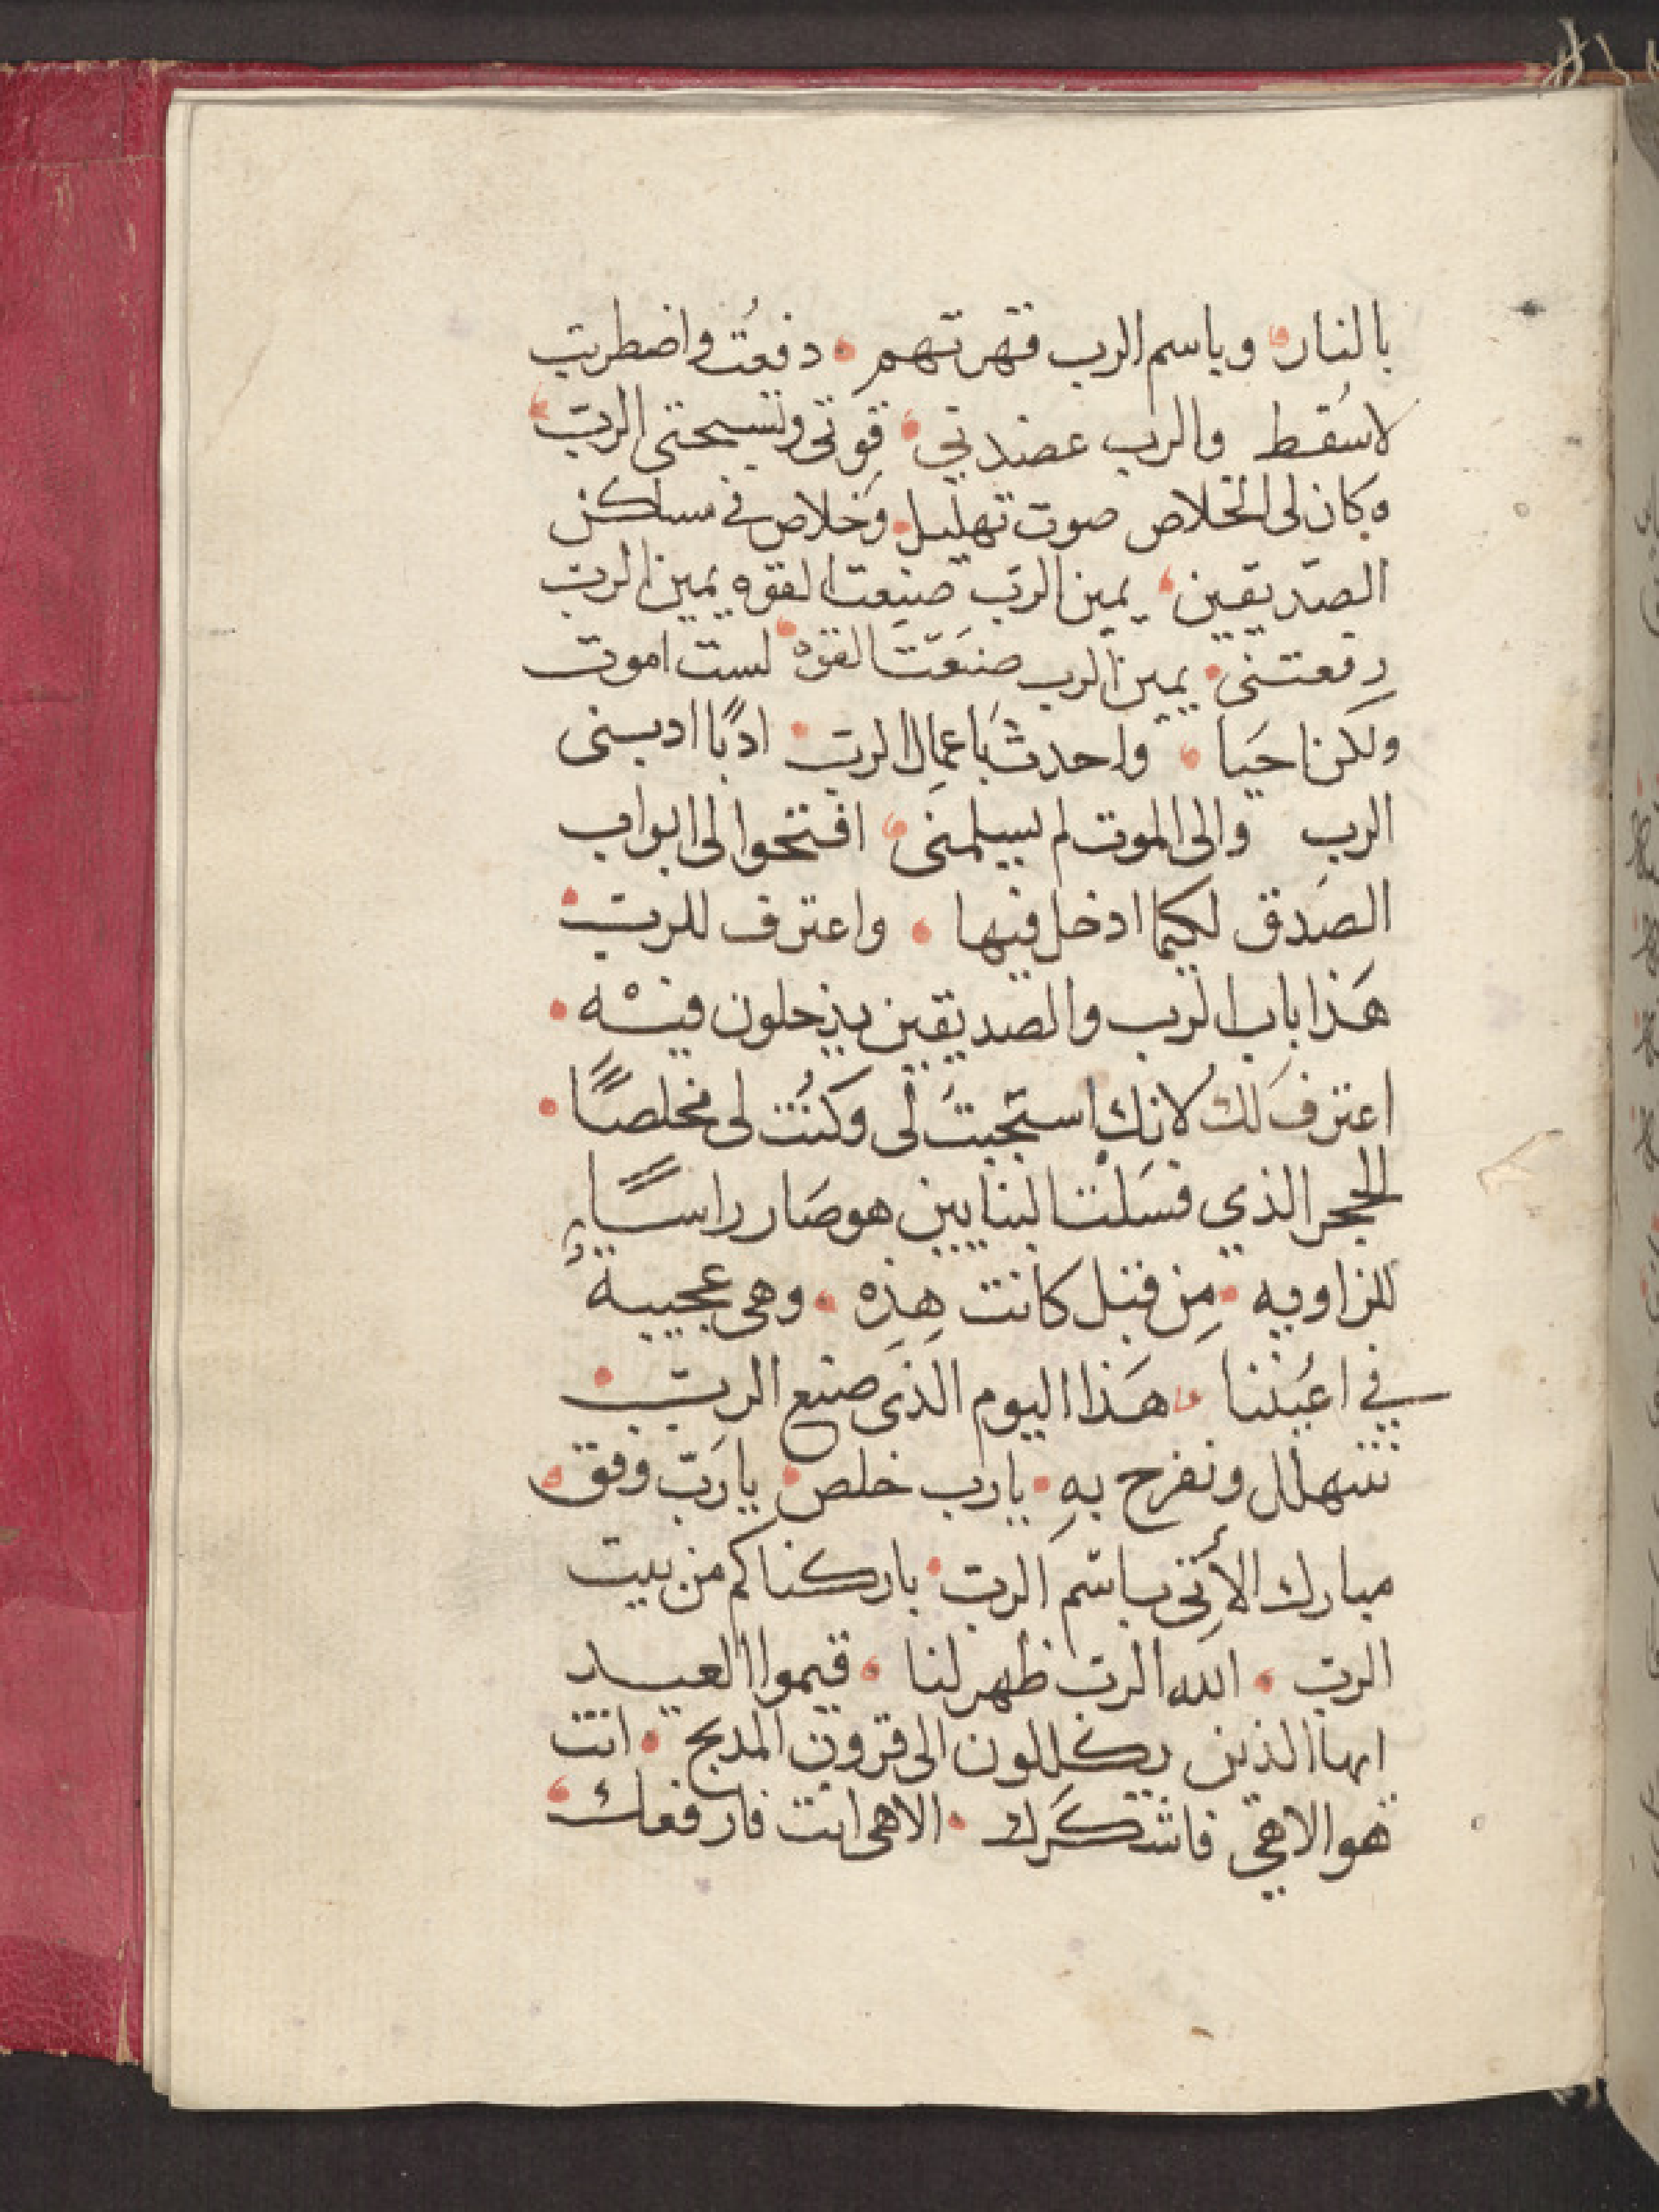 بالنار وباسم الرب قهرتهم دفعُت واضطربت
لاسُقط والرب عضدني قوَتي وتسبحتي الرب
وكان لي الخلاص صوت تهليل وَخلاص في مساكن
الصّديقين يمين الرب صنِعت القوه يمين الرب
رفعتني يمين الرب صنَعَت القوة لست اموت
ولكن احَيا واحدث بَاعمِال الرب ادبًا ادبني
الربِ والى الموت لم يسلمني افتحوا لي ابواب
الصَدق لكيما ادخل فيها واعترف للرب
هَذا باب الرب والصديقين يدخلون فيْه
اعترفَ لك لانك استجبتَ لي وكنُت لي مخلصًا
الحجر الذي فسَلْت البنايين هو صَار راسًا
للزاويه مِن قبل كانت هِذِه وهي عجيبةُ
في اعيُننا هَذا اليوم الَذي صنع الرب
نتهلل ونفرح بهِ يارب خلص يارَب وفق
مبارك الأتي باسم الرب باركناكم من بيت
الرب الله الرب ظهر لنا قيموا العيد
ايها الذين يكللون الى قرون المدبح انت
هو الاهي فاشكَرك الاهي انت فارفعك